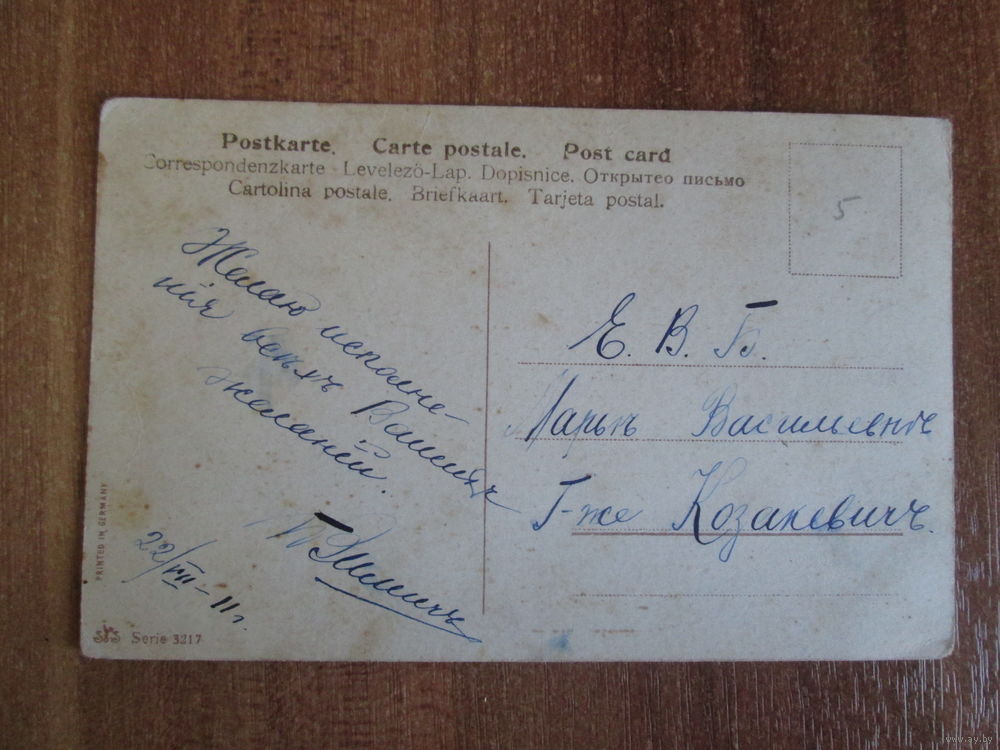 Postkarte. Carte postale. Post card
Correspondenzkarte - Levelezö-Lap. Dopisnice. Открытео письмо
Cartolina postale. Briefkaart. Tarjeta postal.
5
Желаю исполне-
нія всѣхъ Вашихъ
желаній.
22/VIII - 11 г.
Е. В. Б.
Марьѣ Васильевнѣ
Г-же Козакевичъ.
PRINTED IN GERMANY
Serie 3217
www.ay.by